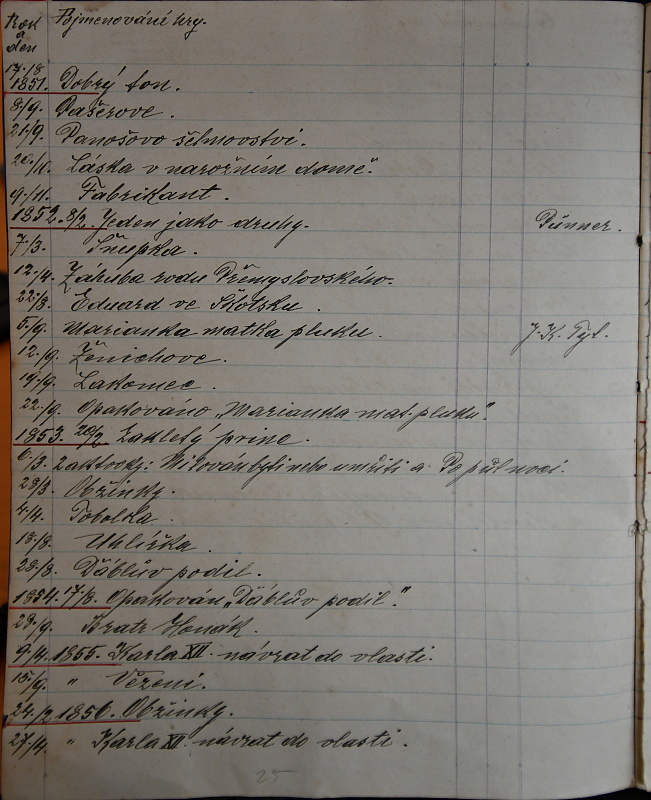 Rok a den Pojmenování hry.
17./8. 1851. Dobrý ton.
8./9. Pašerové.
21./9. Panošovo šelmovství.
20./10. Láska v narožním domě.
9./11. Fabrikant.
1852. 8/2. Jeden jako druhý. Dünner.
7./3. Šňupka.
12./4. Záhuba rodu Přemyslovského.
22./8. Eduard ve Skotsku.
5./9. Marianka matka pluku. J. K. Tyl.
12./9. Ženichové.
19./9. Lakomec.
22./9. Opakováno „Marianka mat. pluku".
1853. 20/2 Zakletý princ.
6./3. 2 aktovky: Milován býti nebo umříti a Po půl noci.
28/3. Obžinky.
4/4. Tobolka.
13./8. Uhlířka.
28./8. Ďáblův podíl.
1854. 17/8. Opakován „Ďáblův podíl."
28./9. Bratr Honák.
9/4. 1855. Karla XII. návrat do vlasti.
15./9. " Vězení.
24./2. 1856. Obžinky.
27./4. " Karla XII. návrat do vlasti.
25